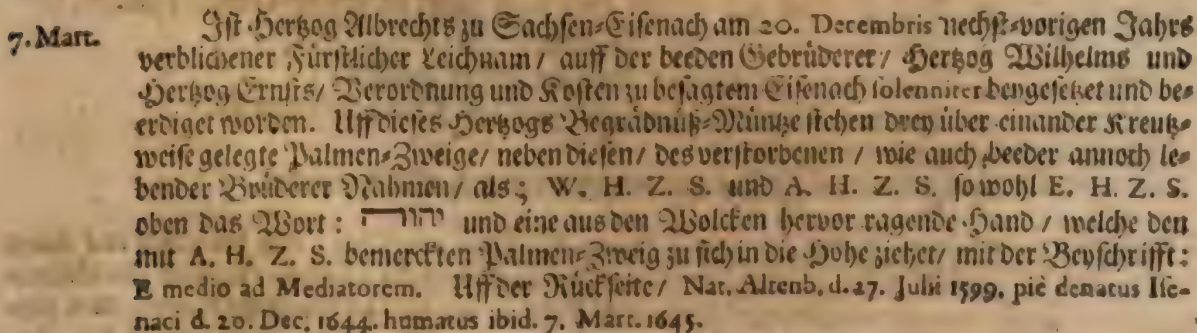 7. Mart. Ist Hertzog Albrechts zu Sachsen-Eisenach am 20. Decembris nechst-vorigen Jahrs
verblichener Fürstlicher Leichnam / auff der beeden Gebrüderer / Hertzog Wilhelms und
Hertzog Ernsts / Verordnung und Kosten zu besagtem Eisenach solenniter beygesetzet und be-
erdiget worden. Uff dieses Hertzogs Begräbnüß-Müntze stehen drey über einander Kreutz-
weise gelegte Palmen-Zweige / neben diesen / des verstorbenen / wie auch beeder annoch le-
bender Brüderer Nahmen / als; W. H. Z. S. und A. H. Z. S. so wohl E. H. Z. S.
oben das Wort: יהוה und eine aus den Wolcken hervor ragende Hand / welche den
mit A. H. Z. S. bemerckten Palmen-Zweig zu sich in die Höhe ziehet / mit der Beyschrifft:
E medio ad Mediatorem. Uff der Rückseite / Nat. Altenb. d. 27. Julii 1599. piè denatus Ise-
naci d. 20. Dec. 1644. humatus ibid. 7. Mart. 1645.